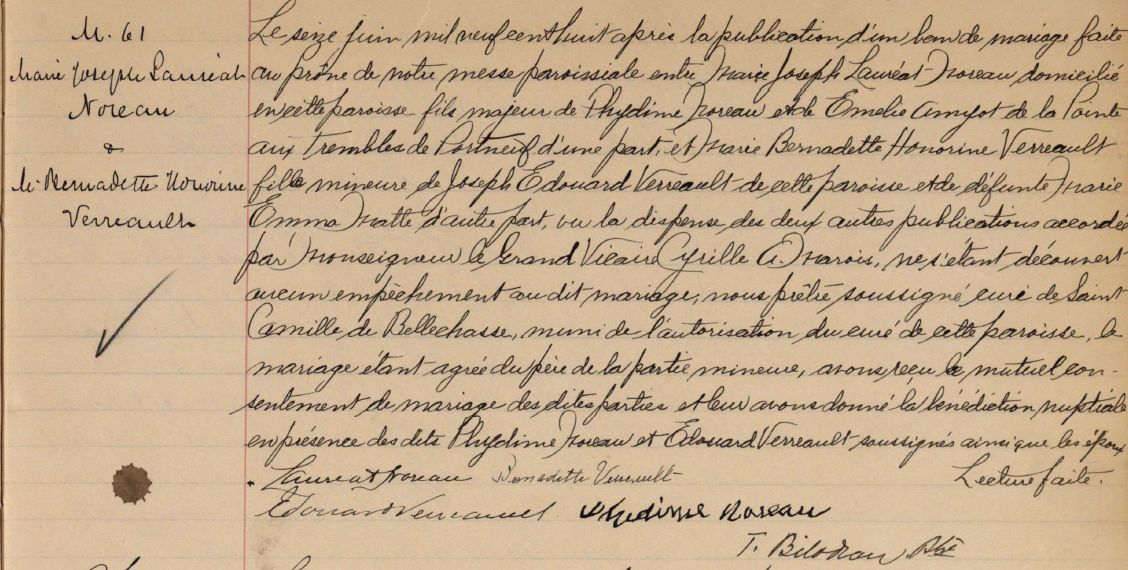 M. 61
Marie Joseph Lauréat
Noreau
&
M. Bernadette Honorine
Verreault
Le seize juin mil neuf cent huit après la publication d'un ban de mariage faite
au prône de notre messe paroissiale entre Marie Joseph Lauréat Noreau domicilié
en cette paroisse fils majeur de Phydime Noreau et de Emelie Amyot de la Pointe
aux Trembles de Portneuf d'une part, et Marie Bernadette Honorine Verreault
fille mineure de Joseph Edouard Verreault de cette paroisse et de défunte Marie
Emma Matte d'autre part, vu la dispense des deux autres publications accordée
par Monseigneur le Grand Vicaire Cyrille A. Marois, ne s'étant découvert
aucun empêchement au dit mariage, nous prêtre soussigné curé de Saint
Camille de Bellechasse, muni de l'autorisation du curé de cette paroisse, le
mariage étant agréé du père de la partie mineure, avons reçu le mutuel con-
sentement de mariage des dites parties et leur avons donné la bénédiction nuptiale
en présence des dits Phydime Noreau et Edouard Verreault soussignés ainsi que les époux
Lauréat Noreau Bernadette Verreault Lecture faite.
Edouard Verreault Phydime Noreau
T. Bilodeau Ptre